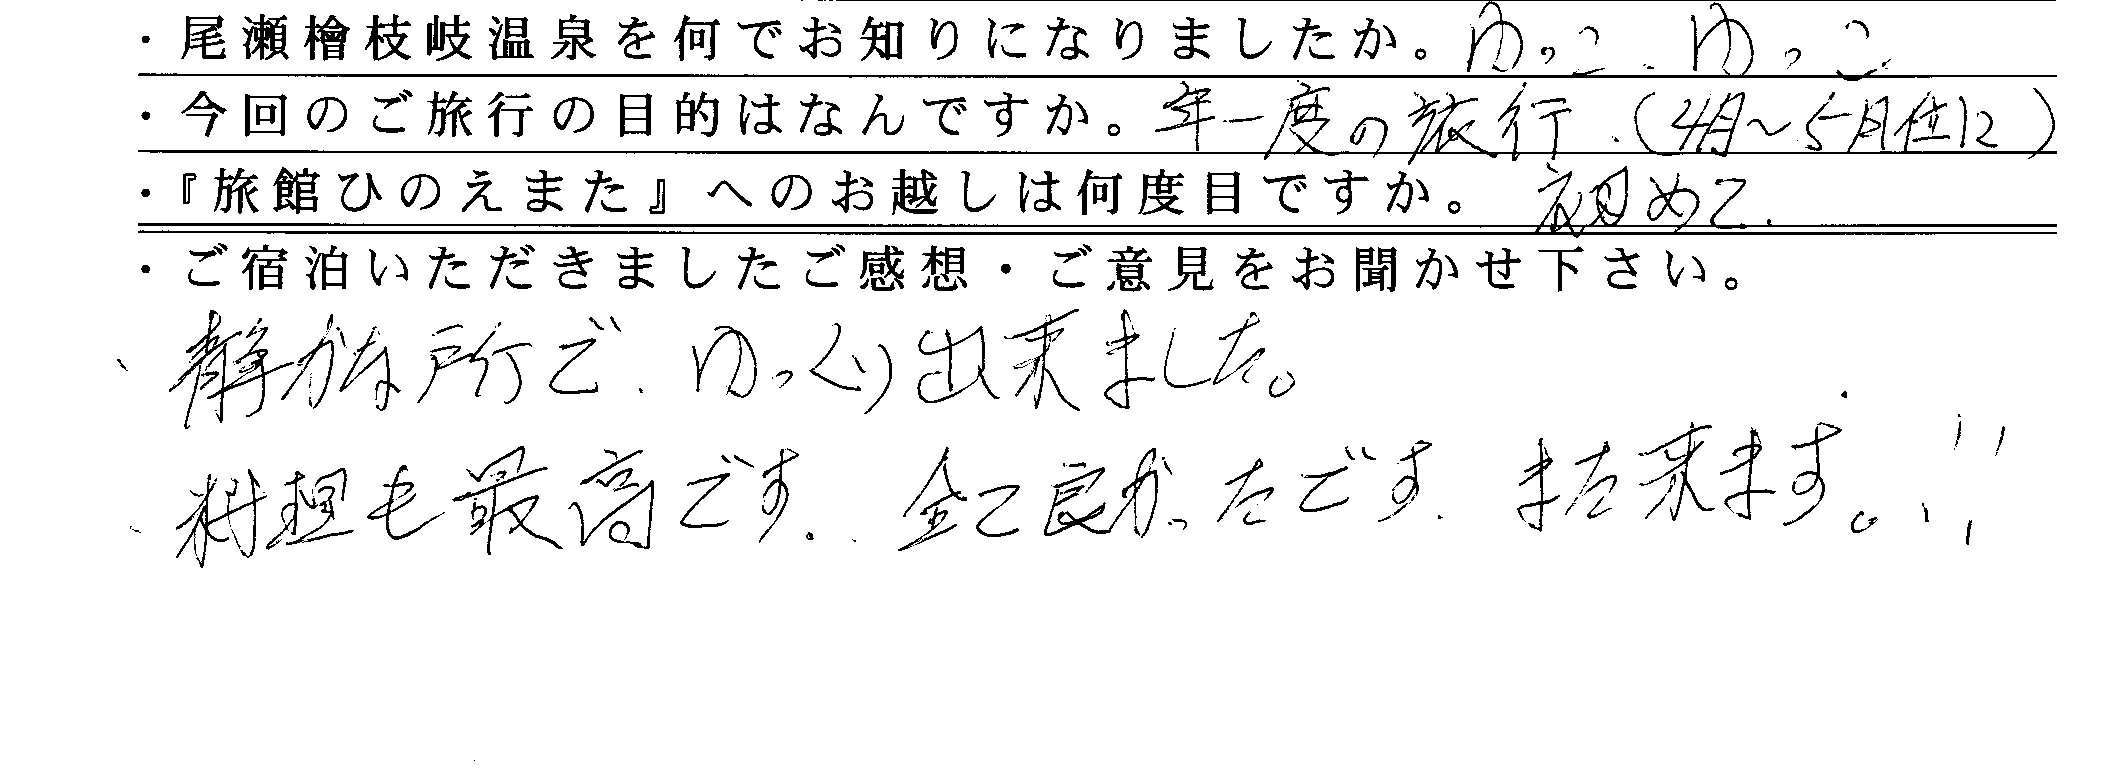 ・尾瀬檜枝岐温泉を何でお知りになりましたか。ゆっこ、ゆっこ
・今回のご旅行の目的はなんですか。年一度の旅行.(4月～5月位に)
・『旅館ひのえまた』へのお越しは何度目ですか。 初めて.
・ご宿泊いただきましたご感想・ご意見をお聞かせ下さい。
、静かな所で、ゆっくり出来ました。
、料理も最高です. 全て良かったです. また来ます。!!